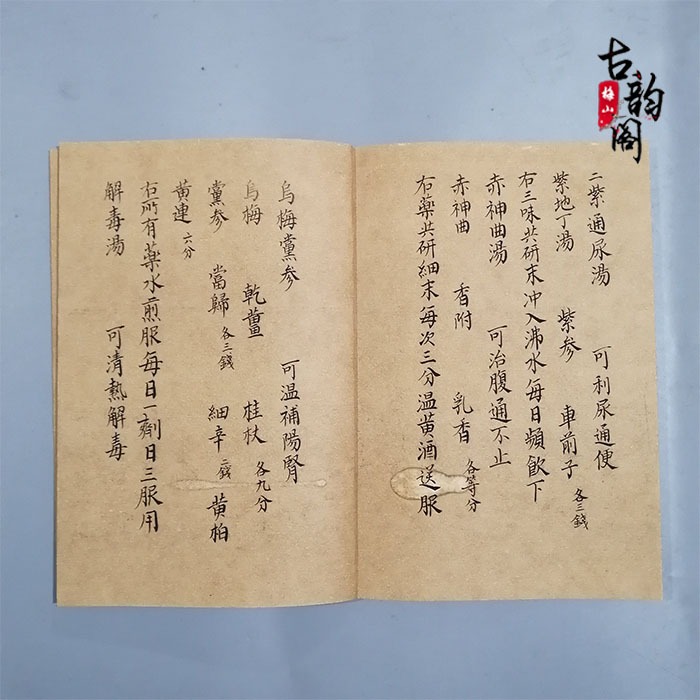 二紫通尿湯 可利尿通便
紫地丁湯 紫参 車前子 各三錢
右三味共研末冲入沸水每日頻飲下
赤神曲湯 可治腹通不止
赤神曲 香附 乳香 各等分
右藥共研細末每次三分温黄酒送服
烏梅黨参 可温補陽腎
烏梅 乾薑 桂杖 各九分
黨参 當歸 各三錢 細辛 二錢 黄柏
黄連 六分
右所有藥水煎服每日一劑日三服用
解毒湯 可清熱解毒
古韵阁
梅山